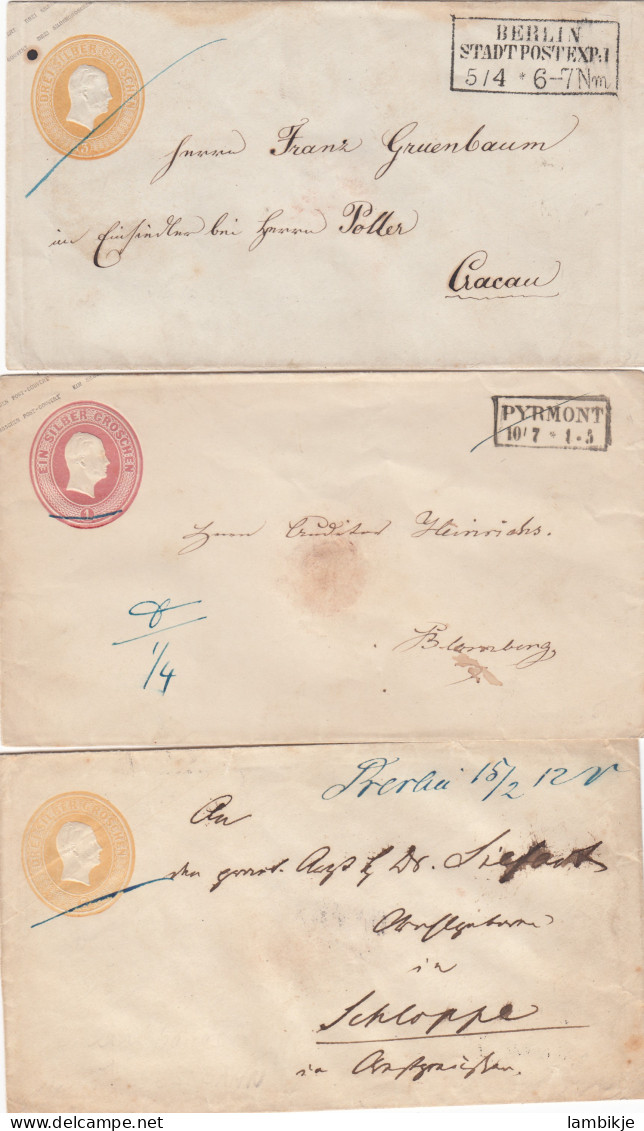 DREI SILBER GROSCHEN
3
BERLIN
STADTPOSTEXP:I
5/4 * 6-7 Nm
Herrn Franz Gruenbaum
im Einsiedler bei Herrn Poller
Cracau
EIN SILBER GROSCHEN
1
PYRMONT
10/7 * 4-5
Herrn Auditor Heinrichs.
1/4
Blomberg
DREI SILBER GROSCHEN
Berlin 15/2 12 V
An
den pract. Arzt Dr.
Wohlgeboren
in
Schloppe
in Westpreußen.
© lambikje
lambikje